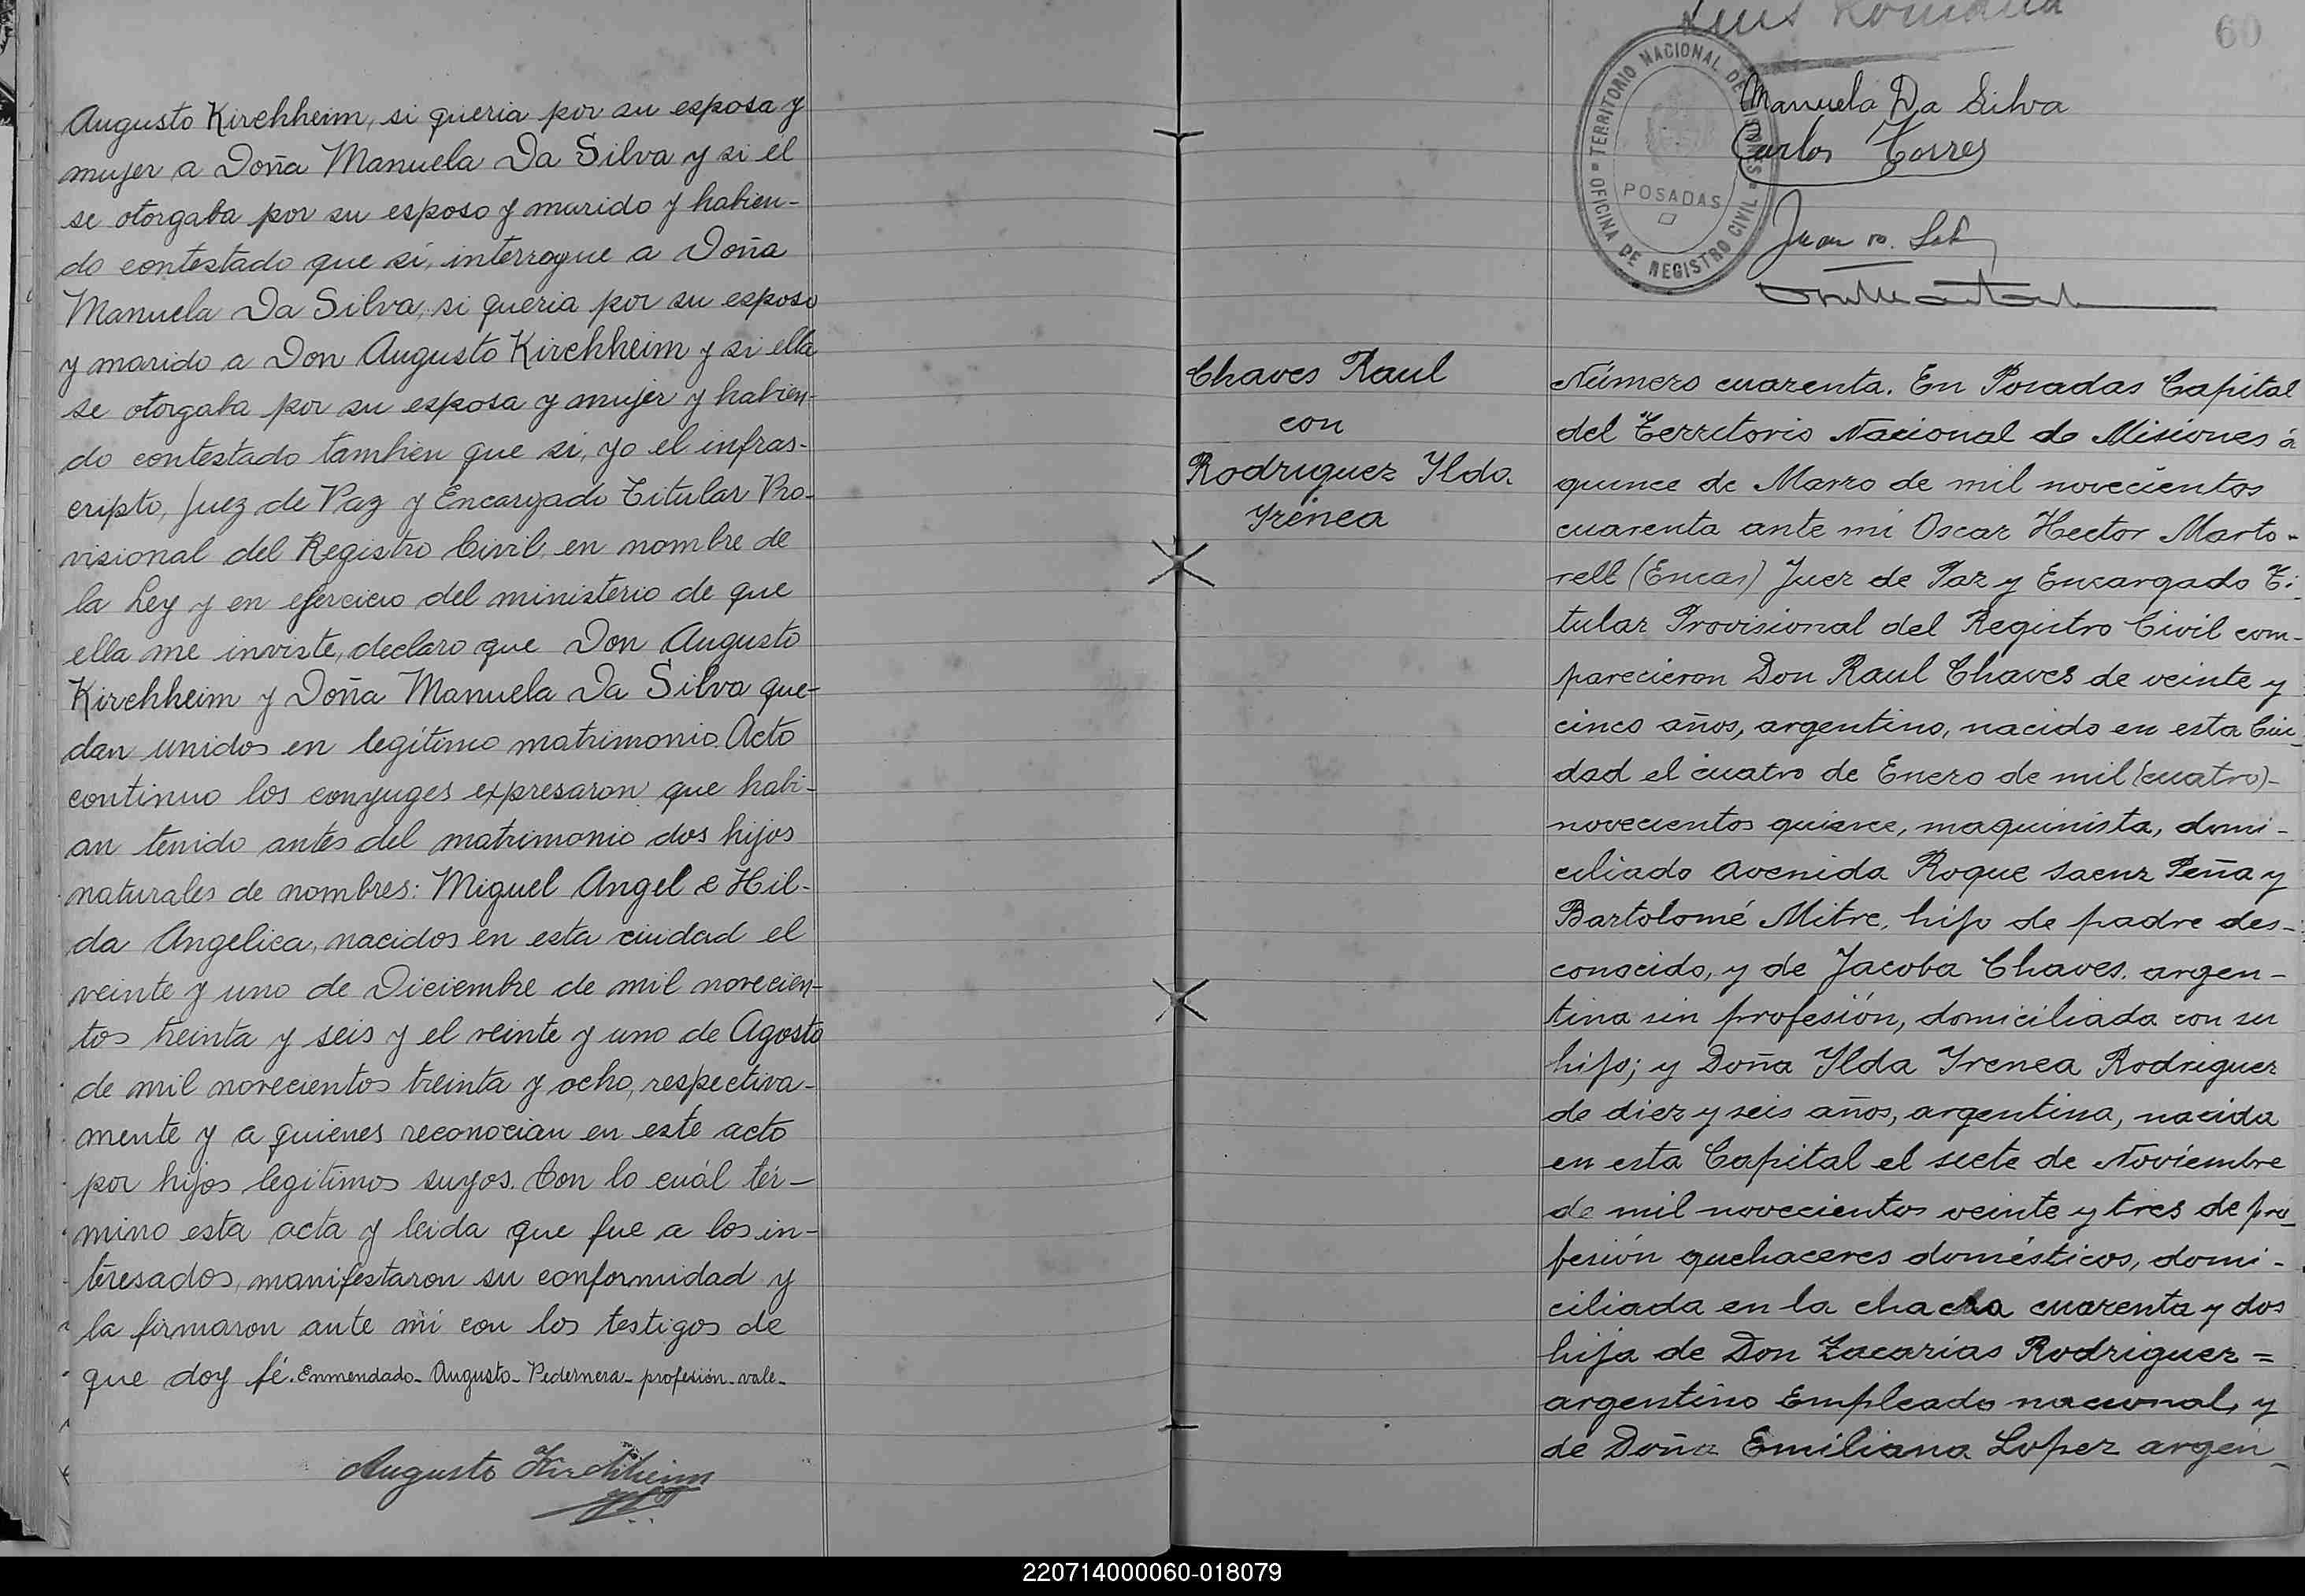 Augusto Kirchheim, si queria por su esposa y
mujer a Doña Manuela Da Silva y si él
se otorgaba por su esposo y marido y habien-
do contestado que si, interrogue a Doña
Manuela Da Silva, si queria por su esposo
y marido a Don Augusto Kirchheim y si ella
se otorgaba por su esposa y mujer y habien-
do contestado tambien que si, yo el infras-
cripto, Juez de Paz y Encargado Titular Pro-
visional del Registro Civil, en nombre de
la Ley y en ejercicio del ministerio de que
ella me inviste, declaro que Don Augusto
Kirchheim y Doña Manuela Da Silva que-
dan unidos en legítimo matrimonio. Acto
continuo los conyuges expresaron que habi-
an tenido antes del matrimonio dos hijos
naturales de nombres: Miguel Angel e Hil-
da Angelica, nacidos en esta ciudad el
veinte y uno de Diciembre de mil novecien-
tos treinta y seis y el veinte y uno de Agosto
de mil novecientos treinta y ocho, respectiva-
mente y a quienes reconocian en este acto
por hijos legítimos suyos. Con lo cuál tér-
mino esta acta y leida que fue a los in-
teresados, manifestaron su conformidad y
la firmaron ante mi con los testigos de
que doy fé. Enmendado- Augusto- Pedernera- profesión- vale-
Augusto Kirchheim
60
Luis Romana
TERRITORIO NACIONAL DE MISIONES
POSADAS
OFICINA DE REGISTRO CIVIL
Manuela Da Silva
Carlos Torres
Juan
Chaves Raul
con
Rodriguez Ylda
Yrenea
Número cuarenta. En Posadas Capital
del Territorio Nacional de Misiones á
quince de Marzo de mil novecientos
cuarenta ante mi Oscar Hector Marto-
rell (Encar) Juez de Paz y Encargado Ti-
tular Provisional del Registro Civil com-
parecieron Don Raul Chaves de veinte y
cinco años, argentino, nacido en esta Ciu-
dad el cuatro de Enero de mil (cuatro)-
novecientos quince, maquinista, domi-
ciliado avenida Roque Saenz Peña y
Bartolomé Mitre, hijo de padre des-
conocido, y de Jacoba Chaves, argen-
tina sin profesión, domiciliada con su
hijo; y Doña Ylda Yrenea Rodriguez
de diez y seis años, argentina, nacida
en esta Capital el siete de Noviembre
de mil novecientos veinte y tres de pro-
fesión quehaceres domésticos, domi-
ciliada en la chacra cuarenta y dos
hija de Don Zacarias Rodriguez =
argentino Empleado nacional, y
de Doña Emiliana Lopez argen-
220714000060-018079